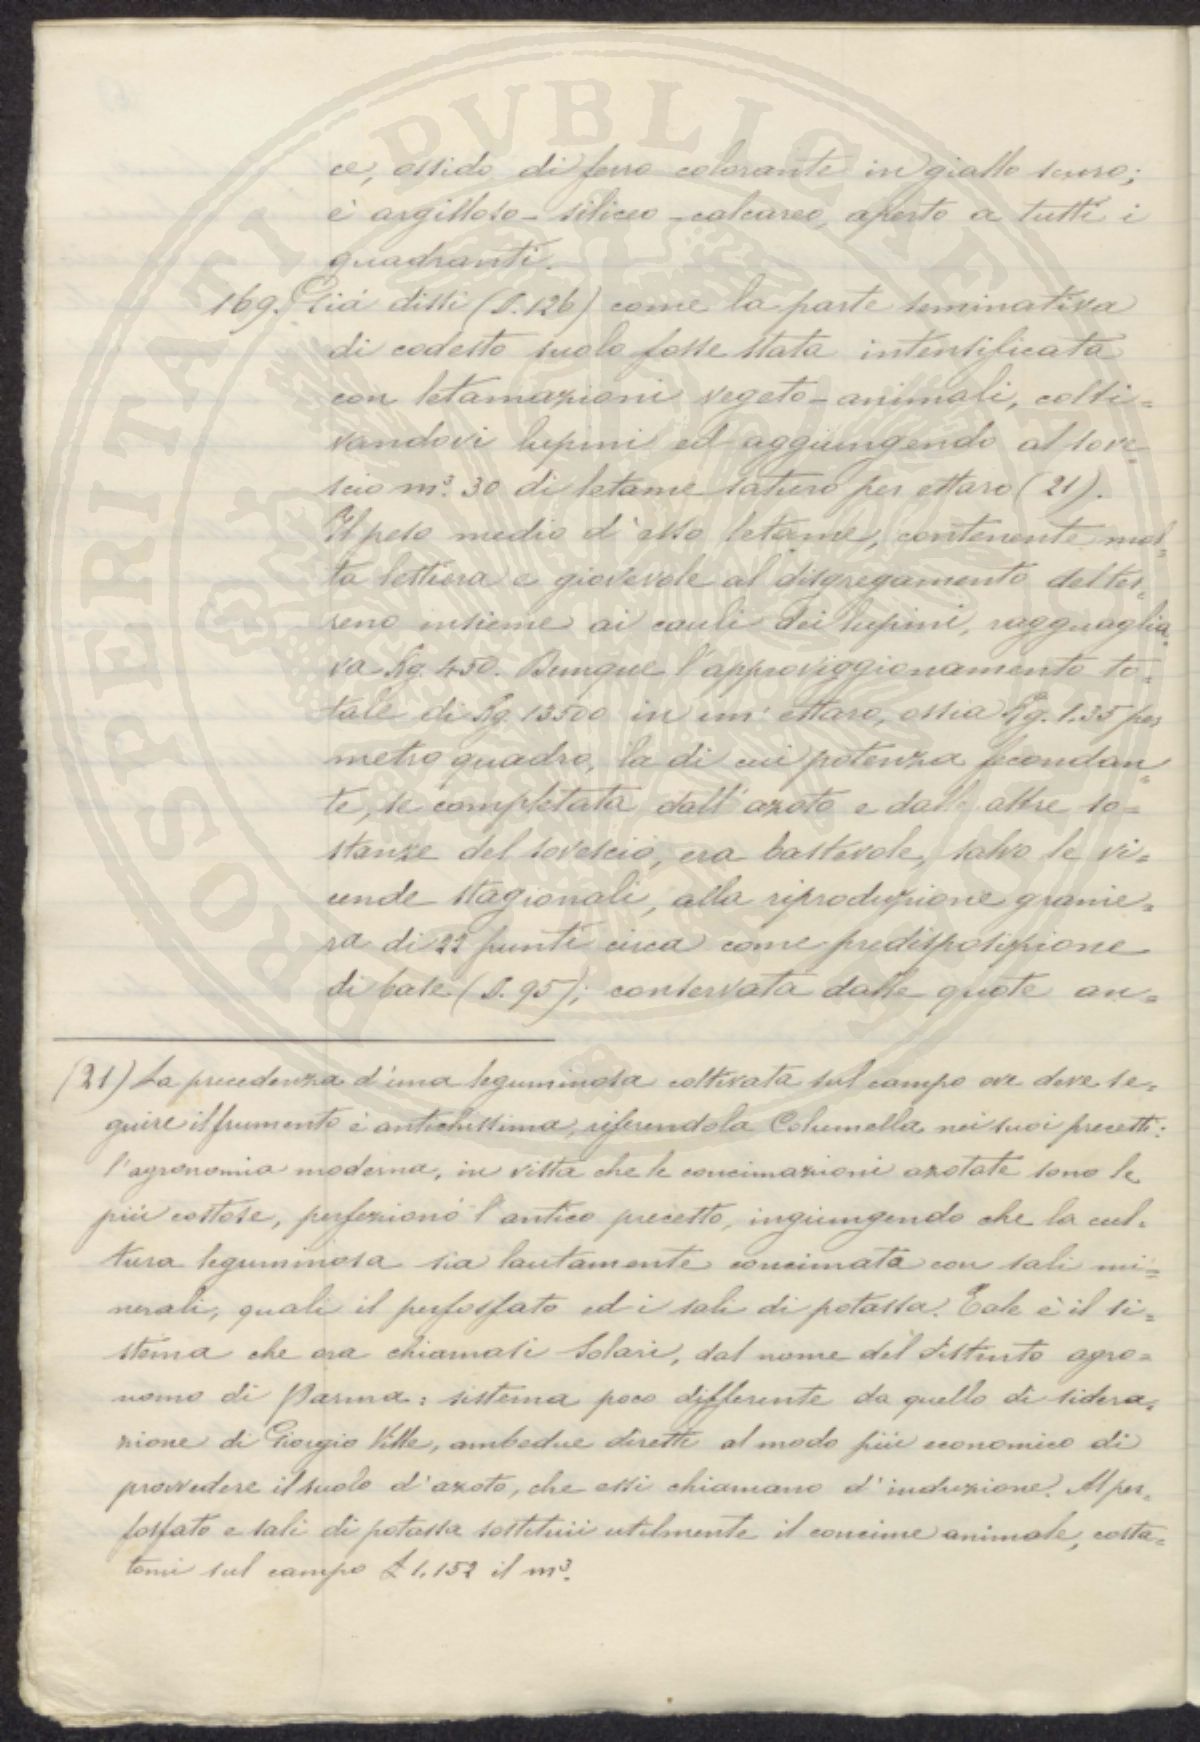 ce, ossido di ferro colorante in giallo scuro;
è argilloso-siliceo-calcareo, aperto a tutti i
quadranti.
169. Già dissi (§.126) come la parte seminativa
di codesto suolo fosse stata intensificata
con letamazioni vegeto-animali, colti=
vandovi lupini ed aggiungendo al sove=
scio m³. 30 di letame saturo per ettaro (21).
Il peso medio d'esso letame, contenente mol=
ta lettiera e giovevole al disgregamento del ter=
reno insieme ai cauli dei lupini, ragguaglia=
va Kg. 450. Dunque l'approviggionamento to=
tale di Kg. 13500 in un' ettaro, ossia Kg. 1.35 per
metro quadro, la di cui potenza fecondan=
te, se completata dall'azoto e dalle altre so=
stanze del sovescio, era bastevole, salvo le vi=
cende stagionali, alla riproduzione granie=
ra di 22 punti circa come predisposizione
di base (§. 95); conservata dalle quote an=
(21) La precedenza d'una leguminosa coltivata sul campo ove deve se=
guire il frumento è antichissima, riferendola Columella nei suoi precetti:
l'agronomia moderna, in vista che le concimazioni azotate sono le
più costose, perfezionò l'antico precetto, ingiungendo che la cul=
tura leguminosa sia lautamente concimata con sali mi=
nerali, quali il perfosfato ed i sali di potassa. Tale è il si=
stema che ora chiamasi Solari, dal nome del distinto agro=
nomo di Parma: sistema poco differente da quello di sidera=
zione di Giorgio Ville, ambedue diretti al modo più economico di
provvedere il suolo d'azoto, che essi chiamano d'induzione. Al per=
fosfato e sali di potassa sostituii utilmente il concime animale, costa=
tomi sul campo £ 1,152 il m³.
PROSPERITATI PVBLICAE